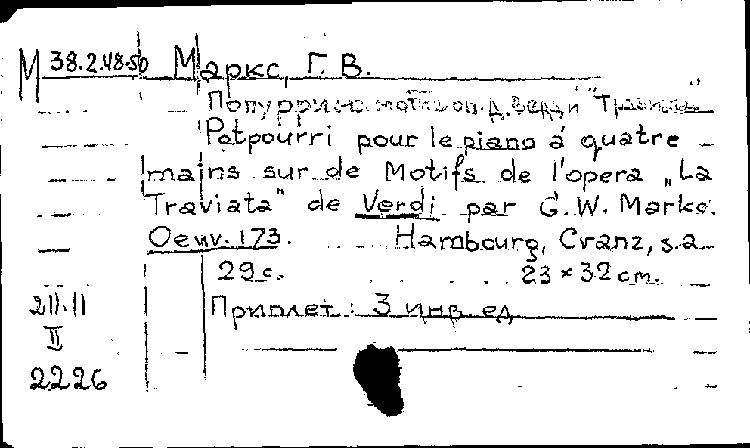 М 38.2.48-50 Маркс, Г. В.
Попурри на мотив оп. Д. Верди "Травиата"
Potpourri pour le piano à quatre
mains sur de Motifs de l'opera „La
Traviata" de Verdi par G. W. Marks.
Oeuv. 173. Hambourg, Cranz, s.a.
29 с. 23 × 32 cm.
Приплет: 3 инв. ед.
211.11
II
2226